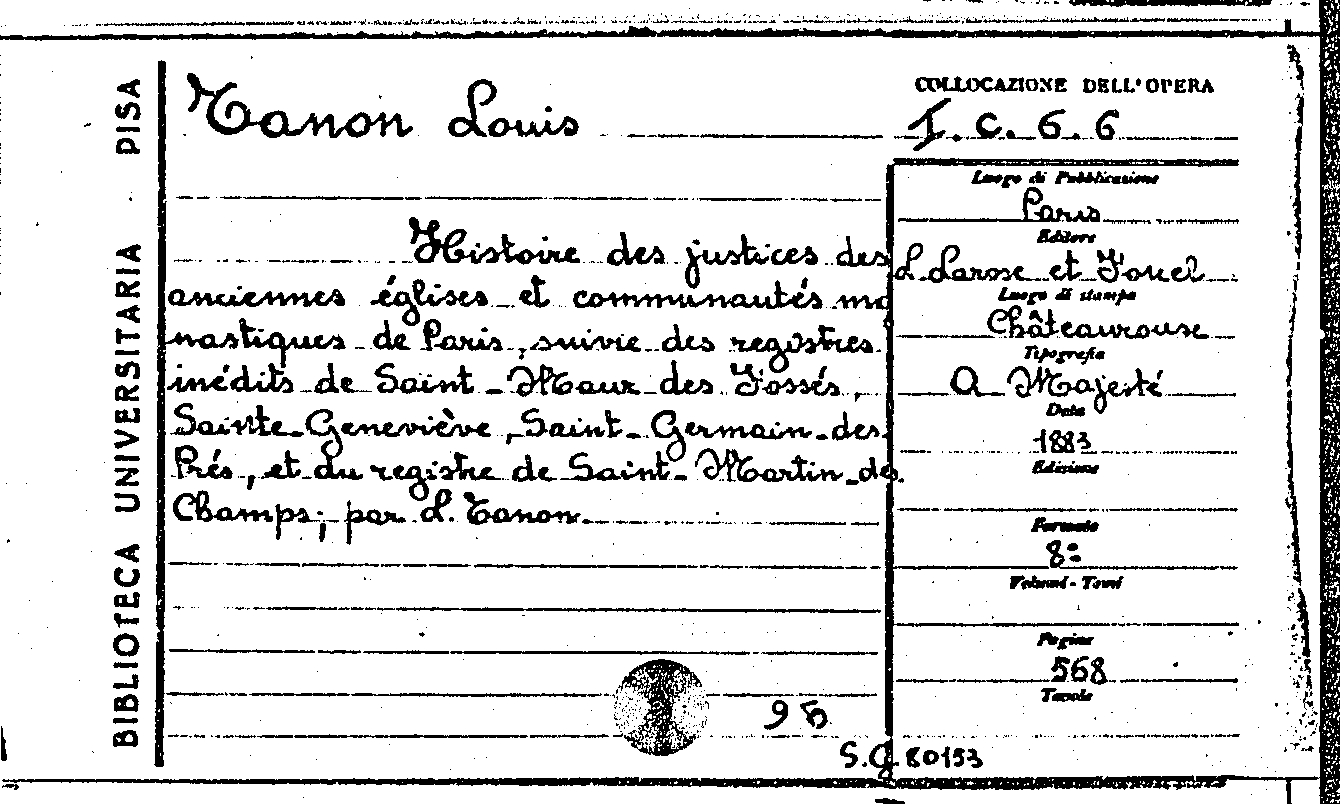 BIBLIOTECA UNIVERSITARIA PISA
Tanon Louis
COLLOCAZIONE DELL'OPERA
I. C. 6. 6
Luogo di Pubblicazione
Paris
Editore
L. Larose et Forcel
Luogo di stampa
Châteaurouse
Tipografia
A Majesté
Data
1883
Edizione
Formato
8°
Volumi - Tomi
Pagine
568
Tavole
Histoire des justices des
anciennes églises et communautés mo
nastiques de Paris, suivie des registres
inédits de Saint-Maur des Fossés,
Sainte-Geneviève, Saint-Germain-des
Prés, et du registre de Saint-Martin-des.
Champs; par L. Tanon.
95
S.G. 80153